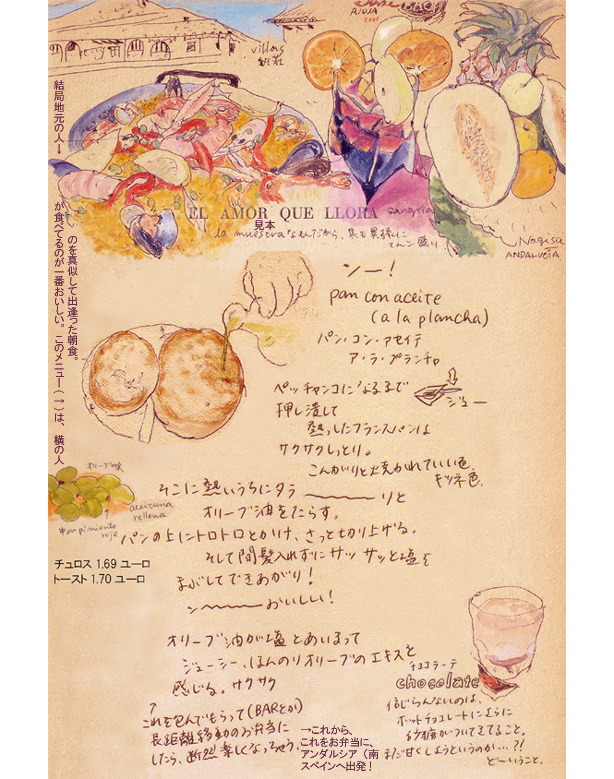 RIOJA
2001
villas
別荘
EL AMOR QUE LLORA
sangria
見本
la muestra
Nagisa
ANDALUCÍA
結局地元の人→
が食べてるのが一番おいしい。このメニュー(↑)は、横の人
のを真似して出逢った朝食。
シー!
pan con aceite
(a la plancha)
パン・コン・アセイテ
ア・ラ・プランチャ
ペッチャンコになるまで
押し潰して
ジュー
熱っしたフランスパンは
サクサクしっとり。
こんがりと焼かれていい色
キツネ色。
オリーブの実
aceituna
rellena
pimiento
rojo
そこに熱いうちにタラ〜〜〜りと
オリーブ油をたらす。
パンの上にトロトロとかけ、さっと切り上げる。
そして間髪入れずにサッサッと塩を
まぶしてできあがり!
ン〜〜〜おいしい!
チュロス 1.69 ユーロ
トースト 1.70 ユーロ
オリーブ油が塩とあいまって
ジューシー、ほんのりオリーブのエキスを
感じる。サクサク
↑
これを包んでもらって(BARとか)
長距離移動のお弁当に
したら、断然楽しくなっちゃう。
→これから、
これをお弁当に、
アンダルシア(南
スペインへ出発!
チョコラーテ
chocolate
信じらんないのは、
ホットチョコレートにさらに
砂糖がついてきてること。
まだ甘くしようというのか…?!
どーいうこと。